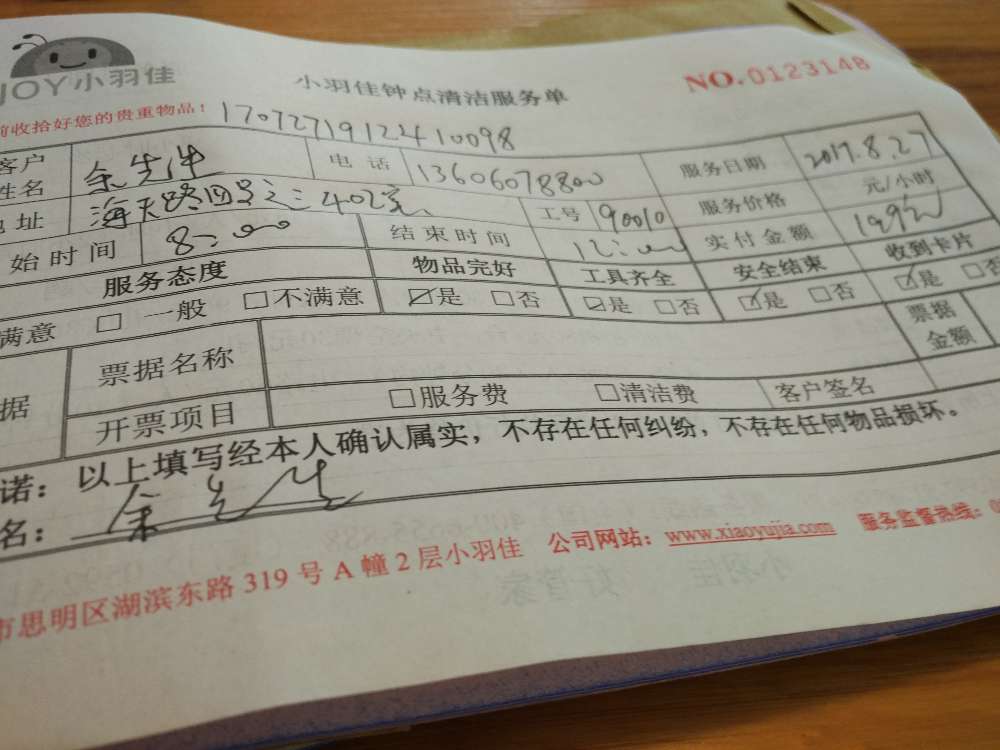 JOY小羽佳
小羽佳钟点清洁服务单
NO.0123148
前收拾好您的贵重物品！
17072719122410098
客户姓名 余先生 电话 13606078800 服务日期 2017.8.27
地址 海天路四号之三402室 工号 90010 服务价格 元/小时
始时间 8:00 结束时间 12:00 实付金额 199元
服务态度 物品完好 工具齐全 安全结束 收到卡片
满意 □ 一般 □不满意 ☑是 □否 ☑是 □否 ☑是 □否 ☑是 □否
据 票据名称 票据金额
开票项目 □服务费 □清洁费 客户签名
诺：以上填写经本人确认属实，不存在任何纠纷，不存在任何物品损坏。
名：余先生
市思明区湖滨东路319号A幢2层小羽佳 公司网站：www.xiaoyujia.com 服务监督热线：